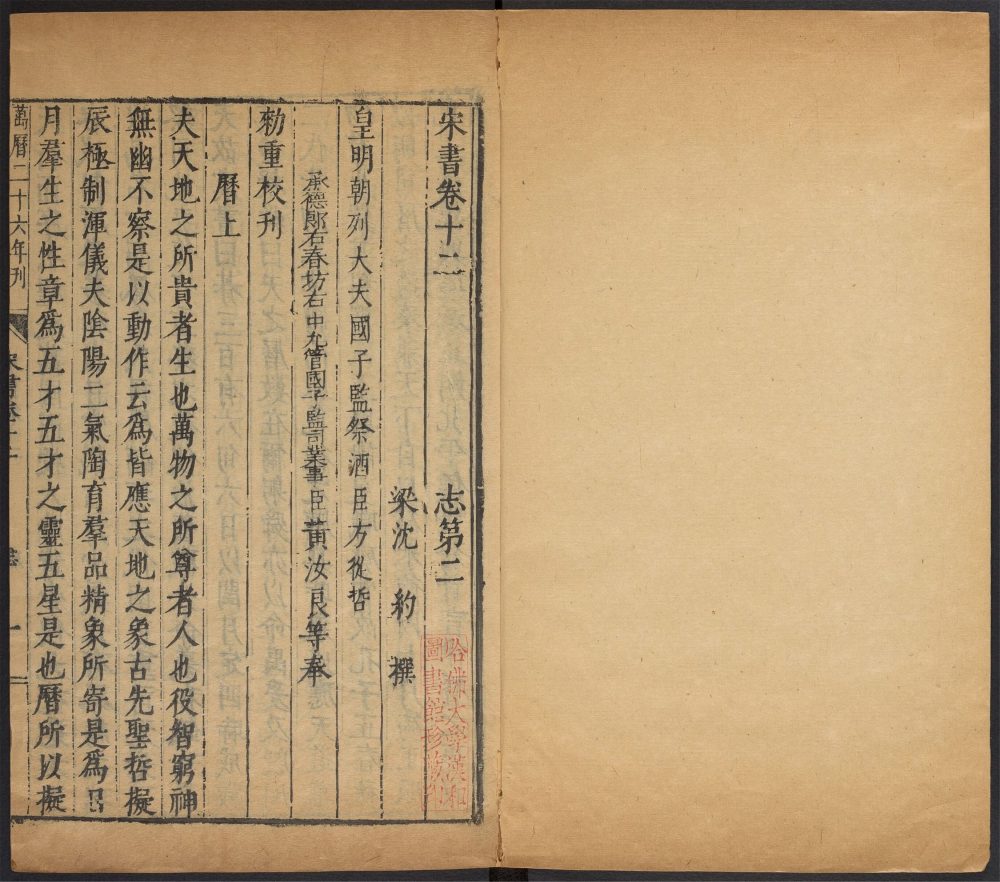 宋書卷十二 志第二
梁沈約撰
皇明朝列大夫國子監祭酒臣方從哲
承德郎右春坊右中允管國子監司業事臣黃汝良等奉
勑重校刊
曆上
夫天地之所貴者生也萬物之所尊者人也役智窮神
無幽不察是以動作云爲皆應天地之象古先聖哲擬
辰極制渾儀夫陰陽二氣陶育羣品精象所寄是爲日
月羣生之性章爲五才五才之靈五星是也曆所以擬
萬曆二十六年刊
宋書卷十二
一
哈佛大學漢和
圖書館珍藏印